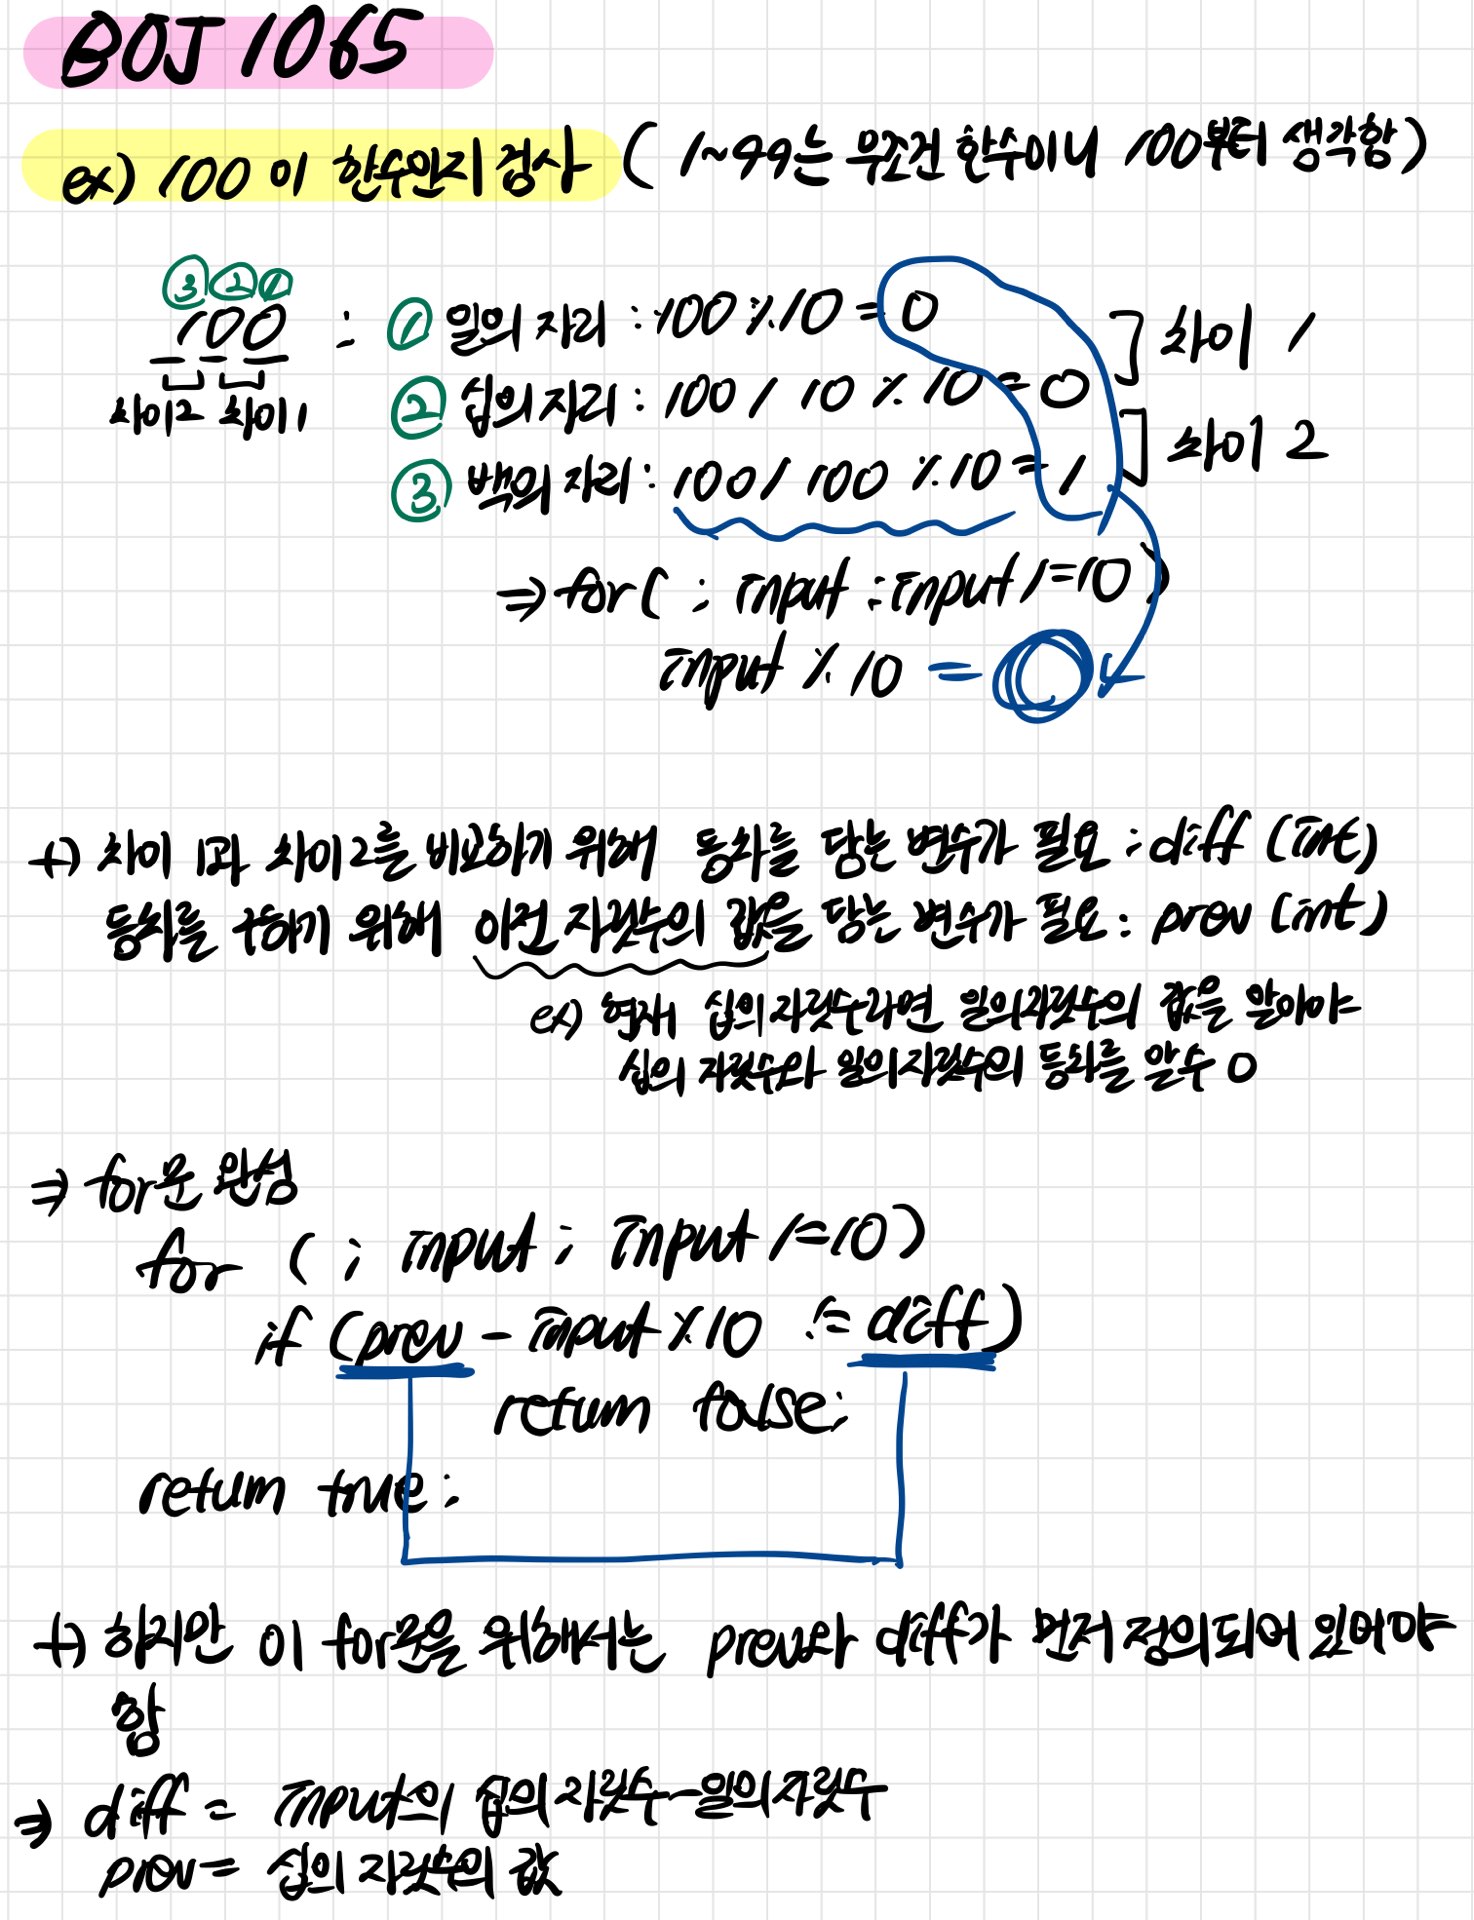 BOJ 1065
ex) 100 이 한수인지 검사 ( 1~99는 무조건 한수이니 100부터 생각함 )
③ ② ①
100 : ① 일의 자리 : 100 % 10 = 0 ] 차이 1
차이2 차이1 ② 십의 자리 : 100 / 10 % 10 = 0
③ 백의 자리 : 100 / 100 % 10 = 1 ] 차이 2
⇒ for( ; input ; input /=10 )
input % 10 =
+) 차이 1과 차이2를 비교하기 위해 등차를 담는 변수가 필요 : diff (int)
등차를 구하기 위해 이전 자릿수의 값을 담는 변수가 필요 : prev (int)
ex) 현재 십의 자릿수라면 일의 자릿수의 값을 알아야
십의 자릿수와 일의 자릿수의 등차를 알 수 O
⇒ for문 완성
for ( ; input ; input /=10 )
if (prev - input % 10 != diff)
return false;
return true;
+) 하지만 이 for문을 위해서는 prev와 diff가 먼저 정의되어 있어야
함
⇒ diff = input의 십의 자릿수 - 일의 자릿수
prev = 십의 자릿수의 값